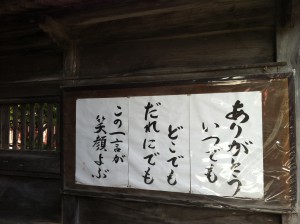 ありがとう
いつでも
どこでも
だれにでも
この一言が
笑顔よぶ